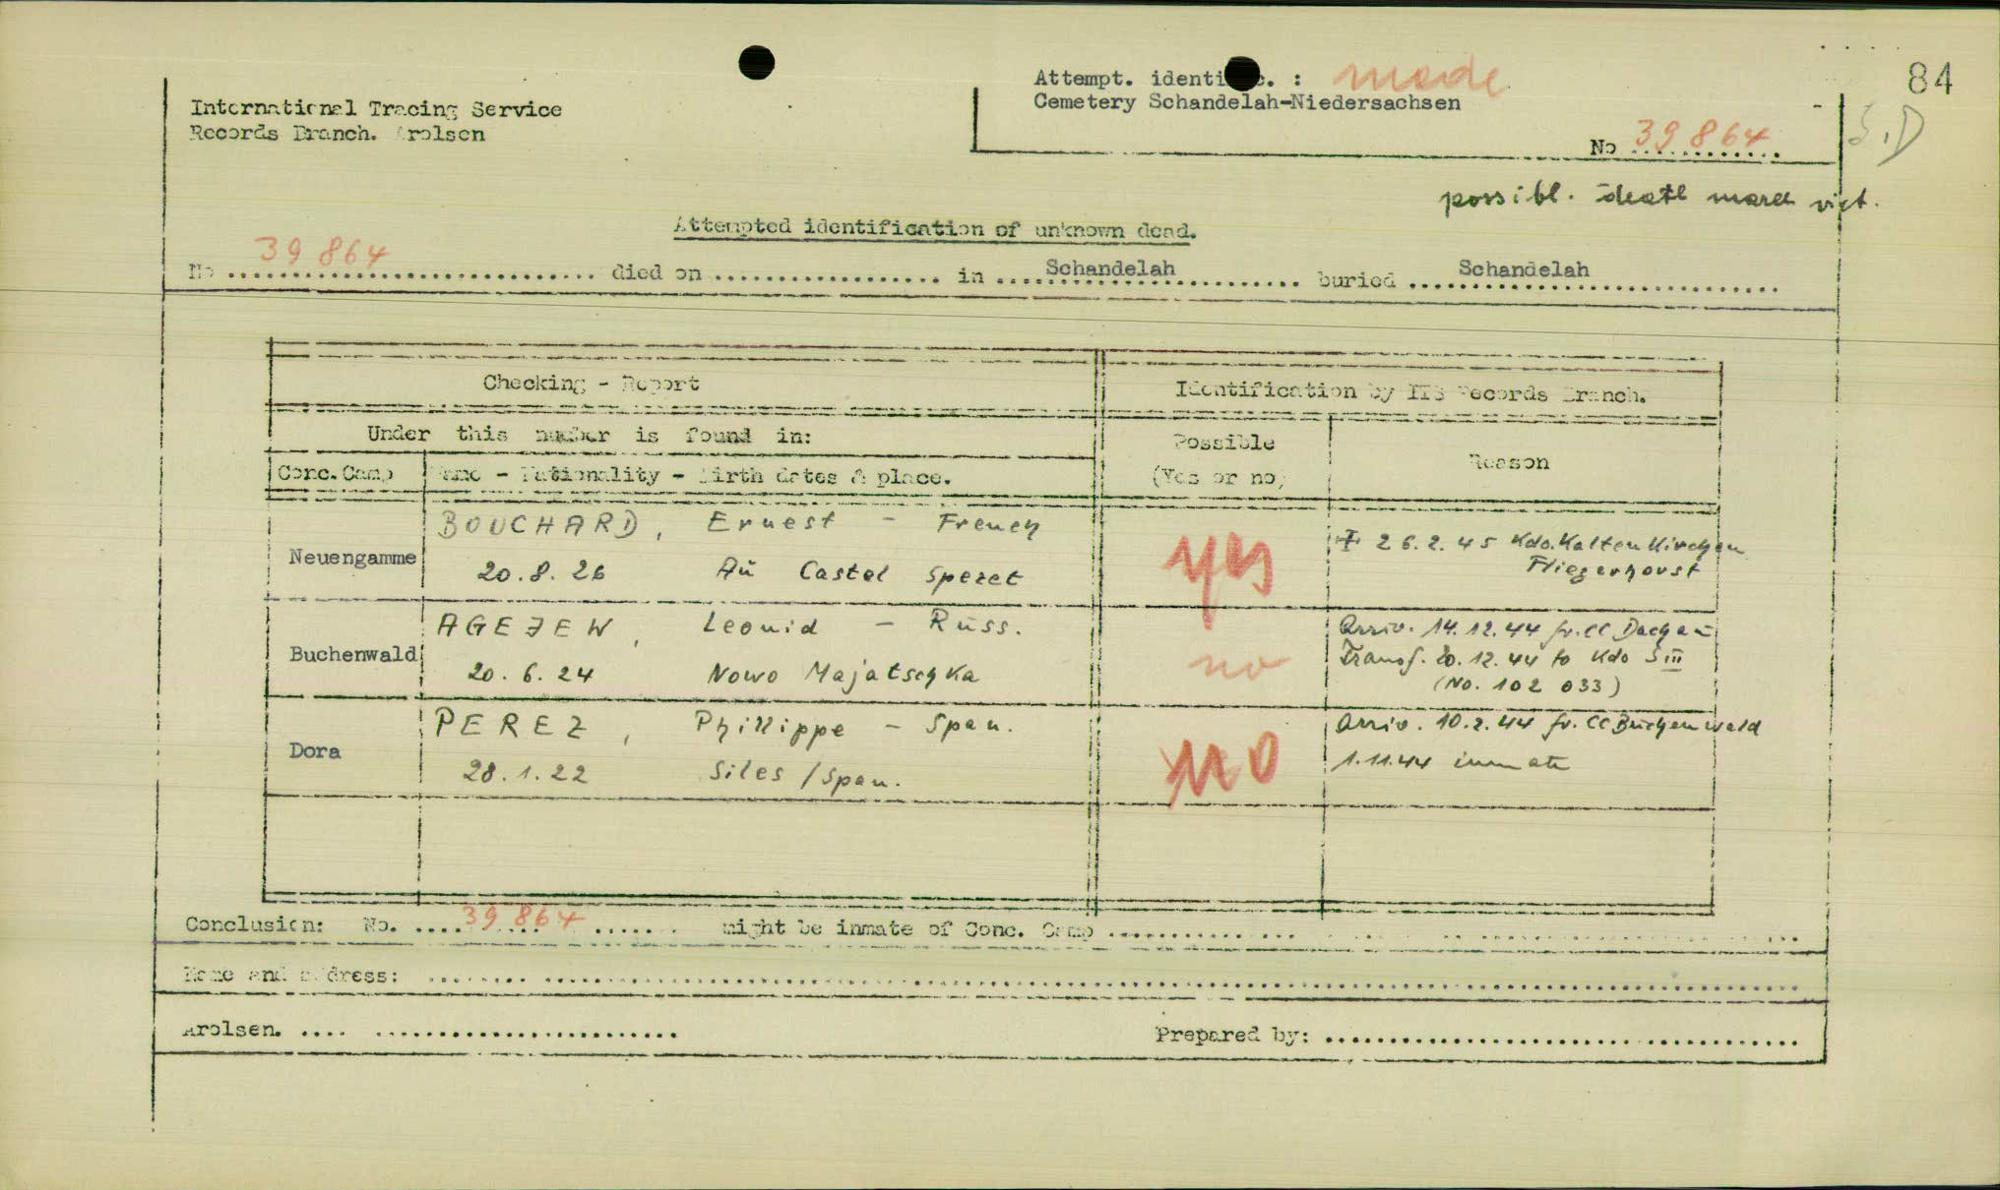 84
Attempt. identific. : made
Cemetery Schandelah-Niedersachsen
International Tracing Service
Records Branch. Arolsen
No 39864
possibl. death march vict.
Attempted identification of unknown dead.
No 39 864 died on in Schandelah buried Schandelah
Checking - Report
Identification by ITS Records Branch.
Under this number is found in:
Possible
(Yes or no)
Reason
Conc.Camp Name - Nationality - Birth dates & place.
BOUCHARD, Ernest - French
Neuengamme
20.8.26 Aü Castel Spezet
yes
+ 26.2.45 Kdo. Kaltenkirchen
Fliegerhorst
AGEJEW, Leonid - Russ.
Buchenwald
20.6.24 Nowo Majatschka
no
Arriv. 14.12.44 fr. CC Dachau
Transf. 20.12.44 to Kdo S III
(No. 102 033)
PEREZ, Phillippe - Span.
Dora
28.1.22 Siles / Span.
no
Arriv. 10.2.44 fr. CC Buchenwald
1.11.44 inmate
Conclusion: No. 39 864 might be inmate of Conc. Camp
Name and address:
Arolsen.
Prepared by: